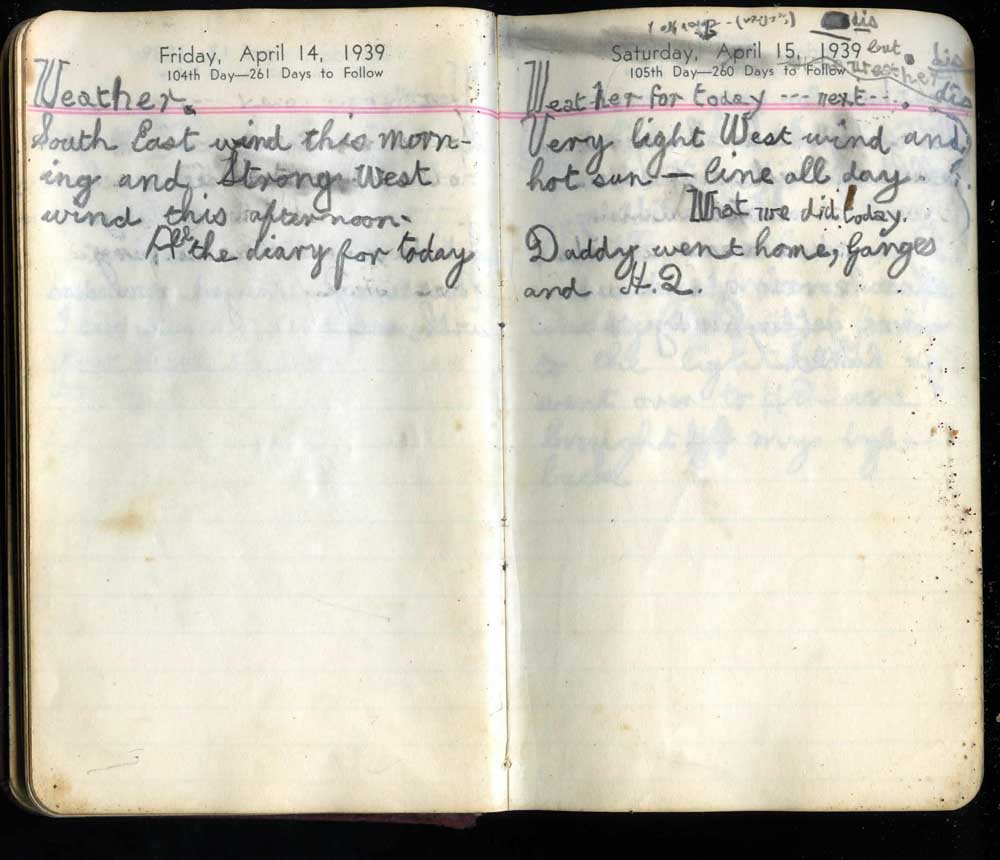 Friday, April 14, 1939
104th Day—261 Days to Follow
Weather.
South East wind this morn-
ing and Strong West
wind this afternoon.
All the diary for today
dis
Saturday, April 15, 1939 but dis
105th Day—260 Days to Follow weather
Weather for today --- next ---. dis
Very light West wind and
hot sun — line all day.
What we did today.
Daddy went home, Ganges
and H.Q.